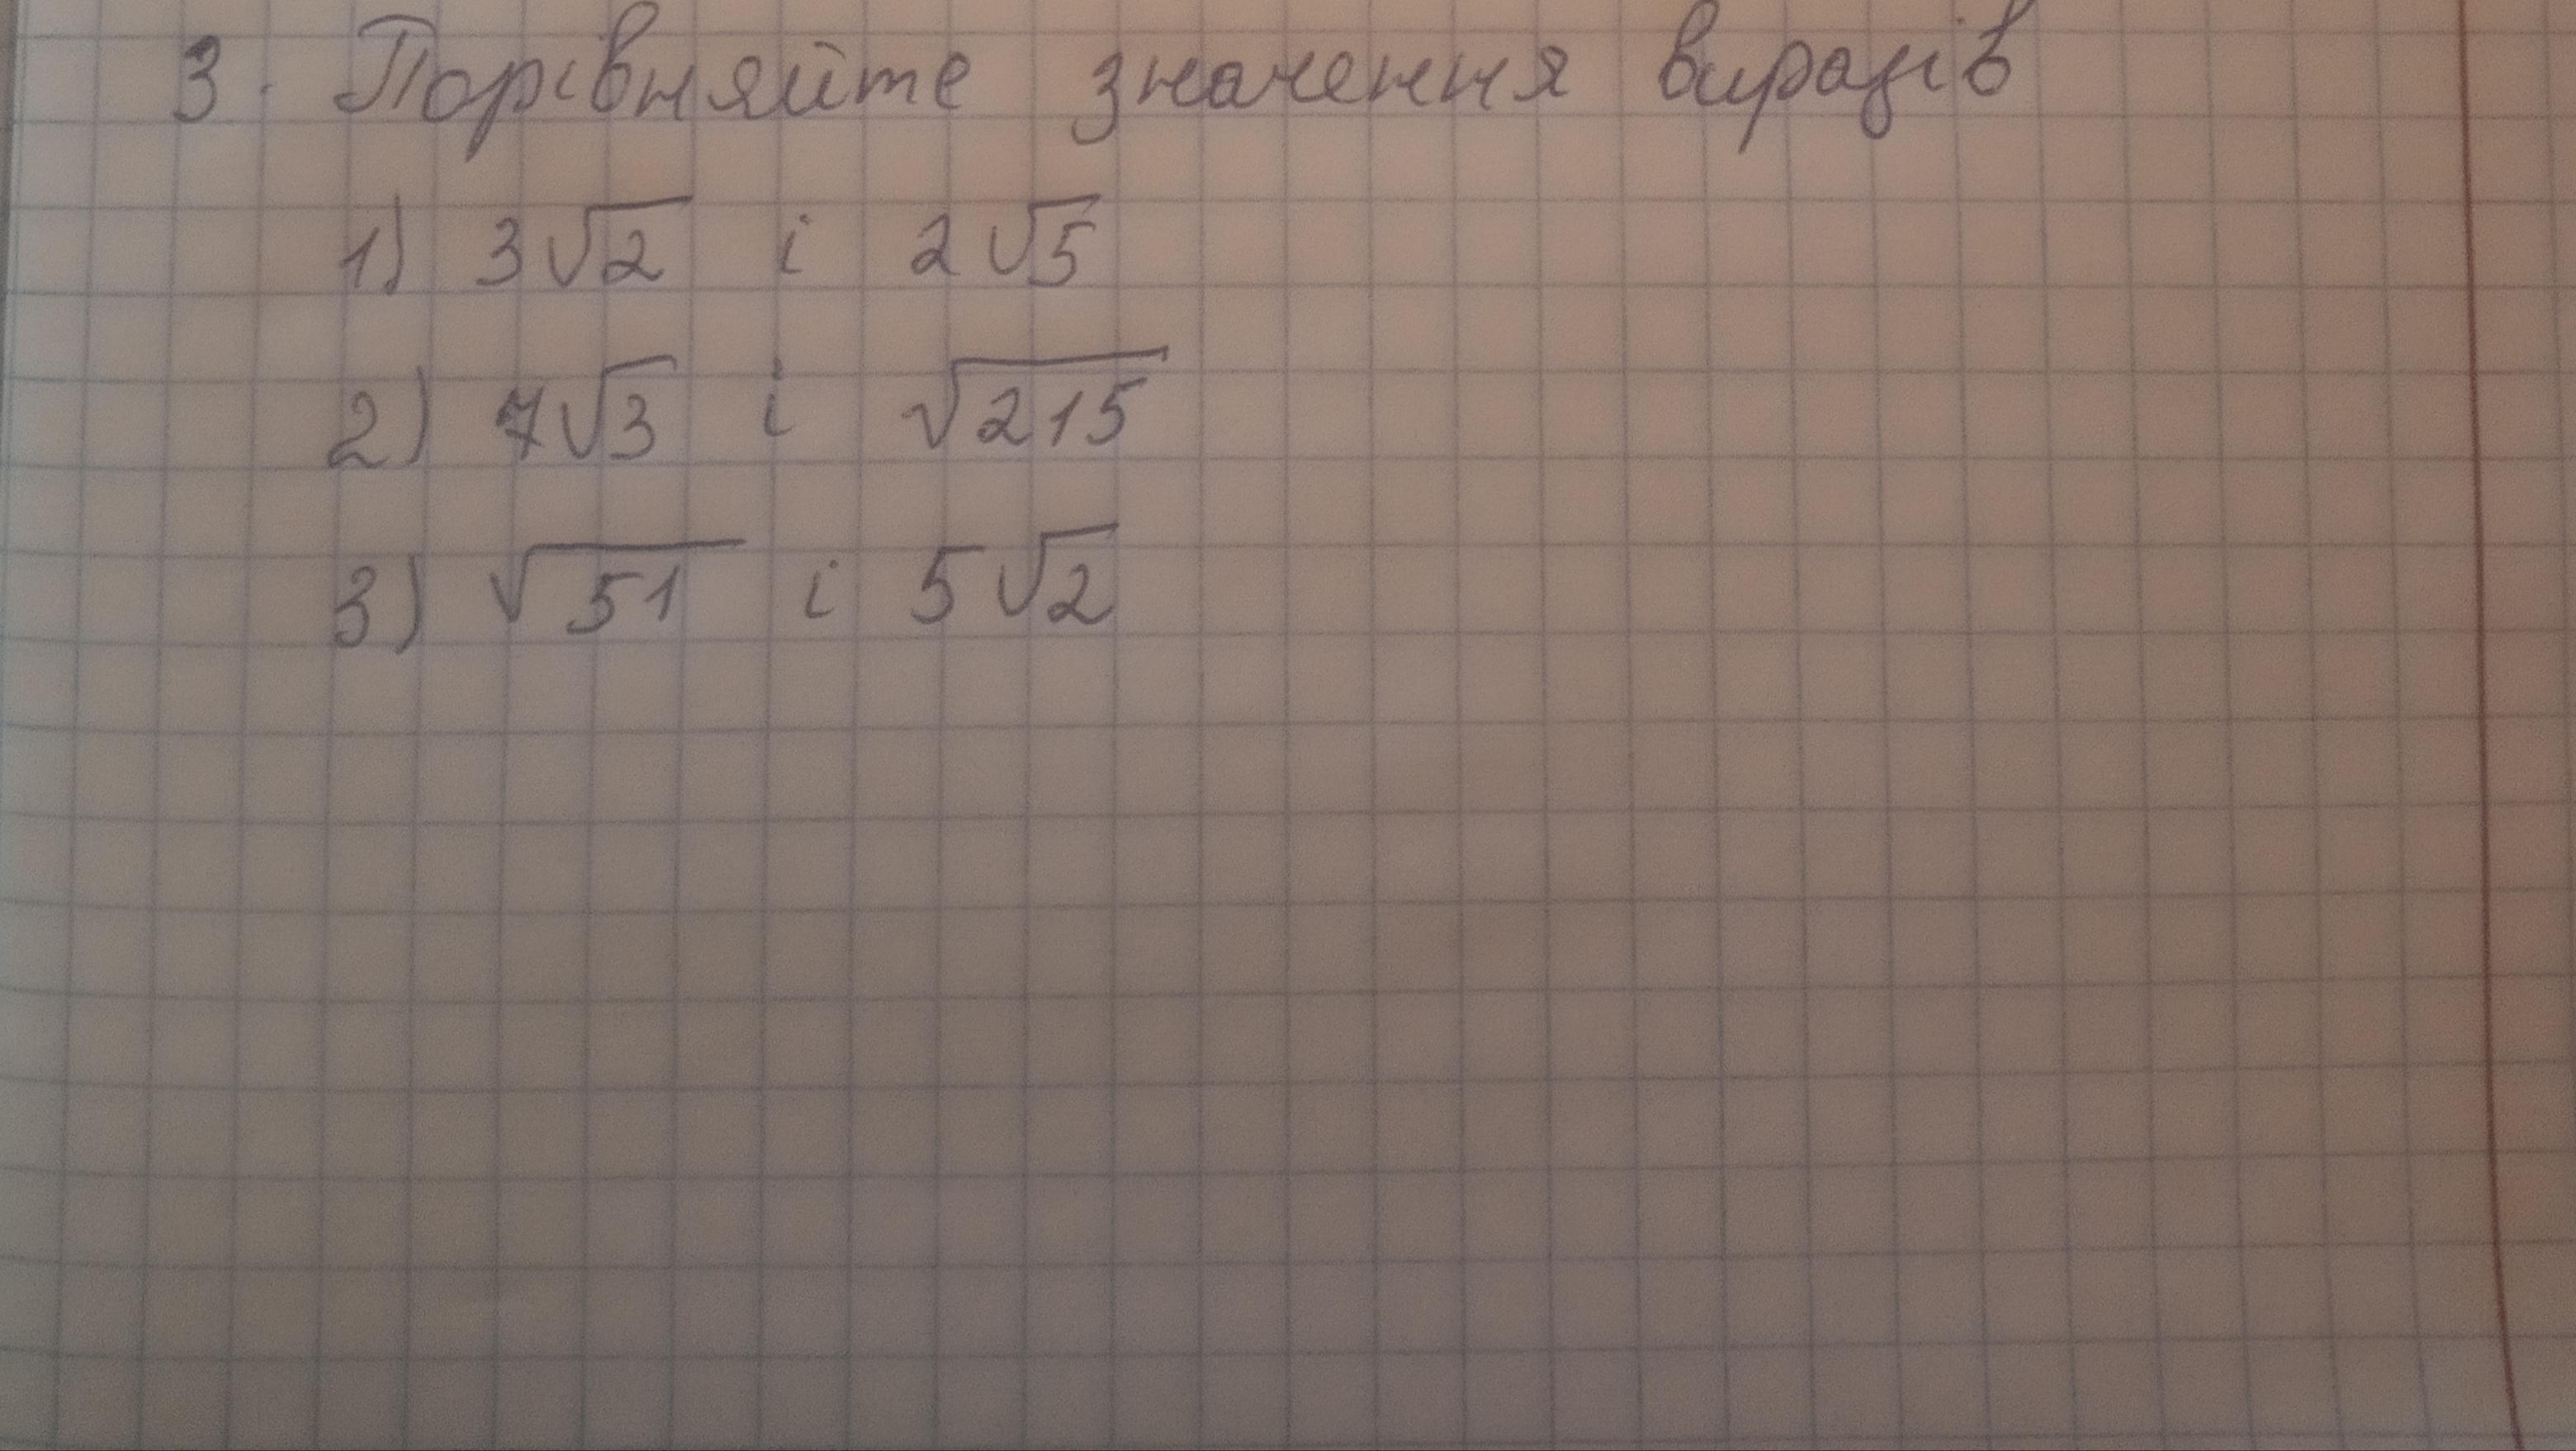 3. Порівняйте значення виразів
1) 3√2 і 2√5
2) 7√3 і √215
3) √51 і 5√2